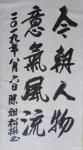 今朝人物
意氣風流
二〇一九年八月六日陳